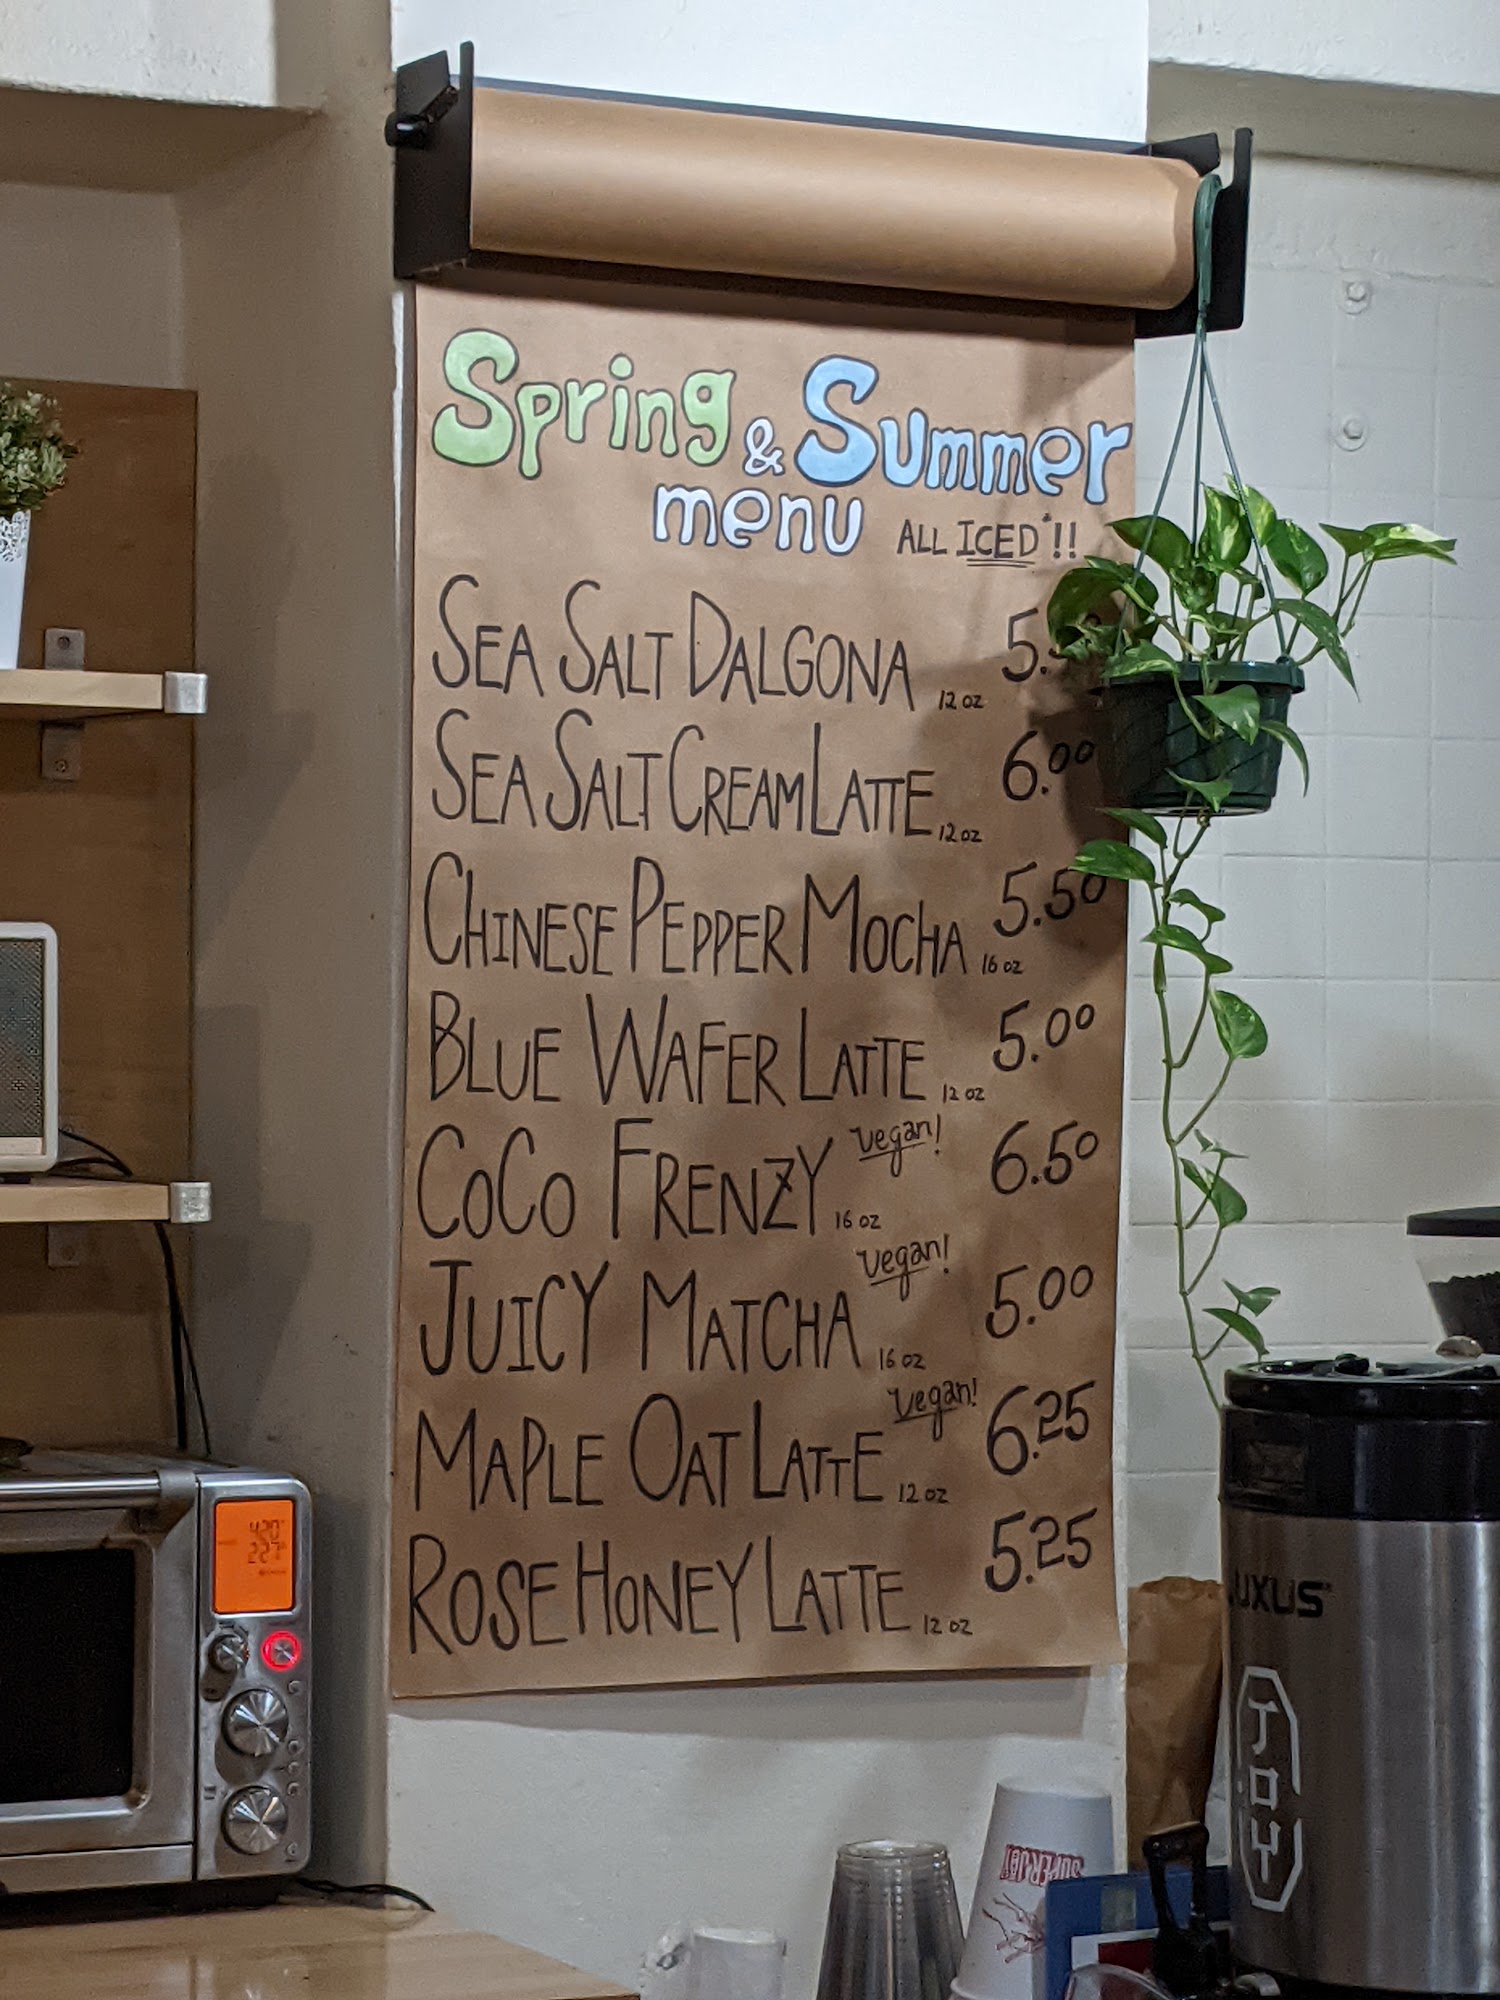 Spring & Summer
menu ALL ICED*!!
SEA SALT DALGONA 12 oz
SEA SALT CREAM LATTE 12 oz 6.00
CHINESE PEPPER MOCHA 16 oz 5.50
BLUE WAFER LATTE 12 oz 5.00
COCO FRENZY vegan! 16 oz 6.50
JUICY MATCHA vegan! 16 oz 5.00
MAPLE OAT LATTE vegan! 12 oz 6.25
ROSE HONEY LATTE 12 oz 5.25
420°F
227°
UXUS
JOY
SUPERJOY